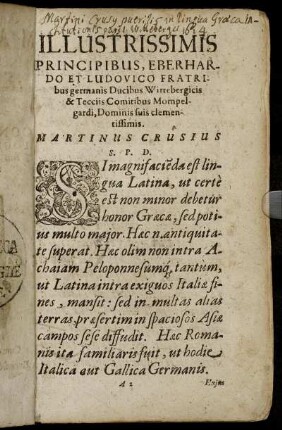 Martini Crusij puerilis in lingua Græca in-
ILLUSTRISSIMIS
PRINCIPIBUS, EBERHAR-
DO ET LUDOVICO FRATRI-
bus germanis Ducibus Wirtebergicis
& Tecciis Comitibus Mompel-
gardi, Dominis suis clemen-
tissimis.
MARTINUS CRUSIUS
S. P. D.
SI magnifaciẽda est lin-
gua Latina, ut certè
est: non minor debetur
honor Græcæ, sed poti-
us multo major. Hæc .n. antiquita-
te superat. Hæc olim non intra A-
chaiam Peloponnesumq; tantum,
ut Latina intra exiguos Italiæ fi-
nes, mansit: sed in multas alias
terras, præsertim in spaciosos Asiæ
campos sese diffudit. Hæc Roma-
nis ita familiaris fuit, ut hodie
Italica aut Gallica Germanis.
A 2 Ejus